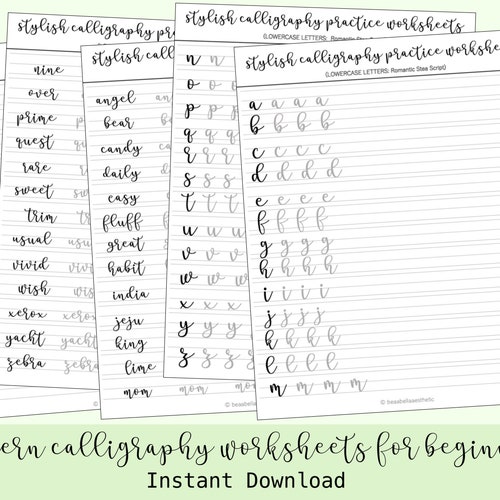 stylish calligraphy practice worksheets
(LOWERCASE LETTERS: Romantic Stea Script)
nine
over
prime
quest
rare
sweet
trim
usual
vivid
wish
xerox xerox
yacht yacht
zebra zebra
angel
bear
candy
daily
easy
fluff
great
habit
india
jeju
king
lime
mom mom mom
n n n
o o o
p p p
q q q
r r r
s s s
t t t
u u u
v v v
w w w
x x x
y y y
z z z
stylish calligraphy practice
(LOWERCASE LETTERS: Romantic Stea Script)
a a a a
b b b b
c c c c
d d d d
e e e e
f f f f
g g g g
h h h h
i i i i
j j j j
k k k k
l l l l
m m m m
© beaabellaesthetic
calligraphy worksheets for
Instant Download